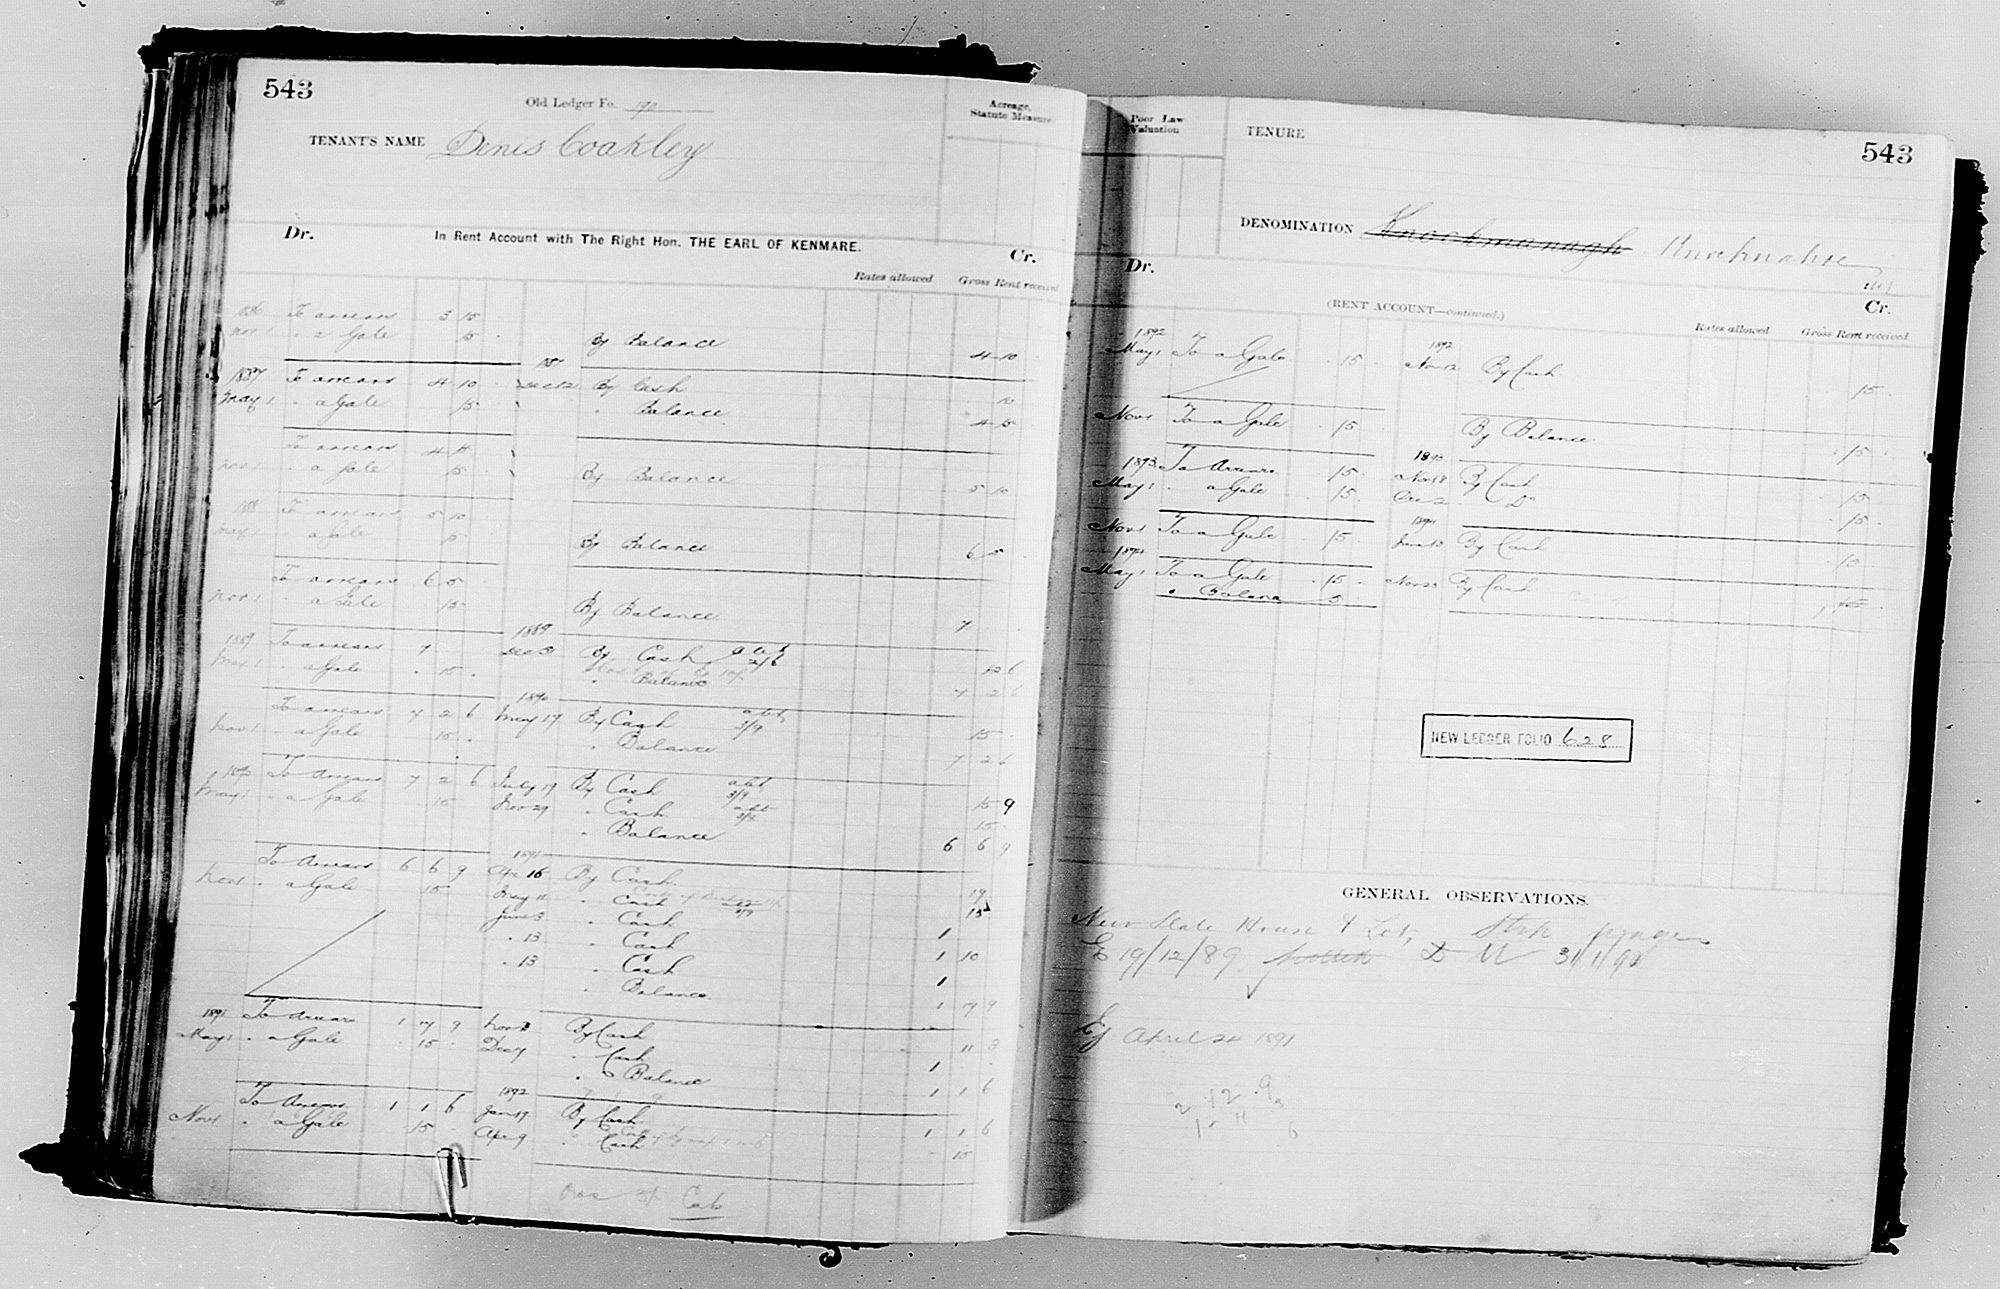 543
Old Ledger Fo. 190
Acreage, Statute Measure
TENANT'S NAME Denis Coakley
Dr. In Rent Account with The Right Hon. THE EARL OF KENMARE. Cr.
Rates allowed Gross Rent received
1886 To arrears 3 15
Nov 1 " a Gale 15 By Balance 4 10
1887 To arrears 4 10 1887 Dec 12 By Cash 10
May 1 " a Gale 15 " Balance 4 15
To arrears 4 15
Nov 1 " a Gale 15 By Balance 5 10
1888 To arrears 5 10
May 1 " a Gale 15 By Balance 6 5
To arrears 6 5
Nov 1 " a Gale 15 By Balance 7
1889 To arrears 7 1889 Dec By Cash 2/6 12 6
May 1 " a Gale 15 " Balance 7 2 6
To arrears 7 2 6 1890 May 17 By Cash abt 3/9 15
Nov 1 " a Gale 15 " Balance 7 2 6
1890 To Arrears 7 2 6 July 19 By Cash abt 3/9 15 9
May 1 " a Gale 15 Nov 29 " Cash abt 15
" Balance 6 6 9
To Arrears 6 6 9 1891 Apr 16 By Cash 19
Nov 1 " a Gale 15 May 11 " Cash 15
June 3 " Cash 1
" 13 " Cash 1 10
" 13 " Cash 1
" Balance 1 7 9
1891 To Arrears 1 7 9 Nov By Cash 11 3
May 1 " a Gale 15 Dec 7 " Cash 1
" Balance 1 1 6
To Arrears 1 1 6 1892 Jan 17 By Cash 1 1 6
Nov 1 " a Gale 15 Apr 9 " Cash 15
Cash
Poor Law Valuation
TENURE
543
DENOMINATION Knockmanagh
Dr. (RENT ACCOUNT—continued.) Cr.
Rates allowed Gross Rent received
1892 May 1 To a Gale 15 1892 Nov 12 By Cash 15
Nov 1 To a Gale 15 By Balance 15
1893 To Arrears 15 1893 Nov 18 By Cash 15
May 1 " a Gale 15 Dec 2 " Do 15
Nov 1 To a Gale 15 1894 June 13 By Cash 15
1894 May 1 To a Gale 15 Nov 23 By Cash 1
" Balance 5
NEW LEDGER FOLIO 628
GENERAL OBSERVATIONS.
New Slate House & Lot,
E 19/12/89
Ej April 24 1891